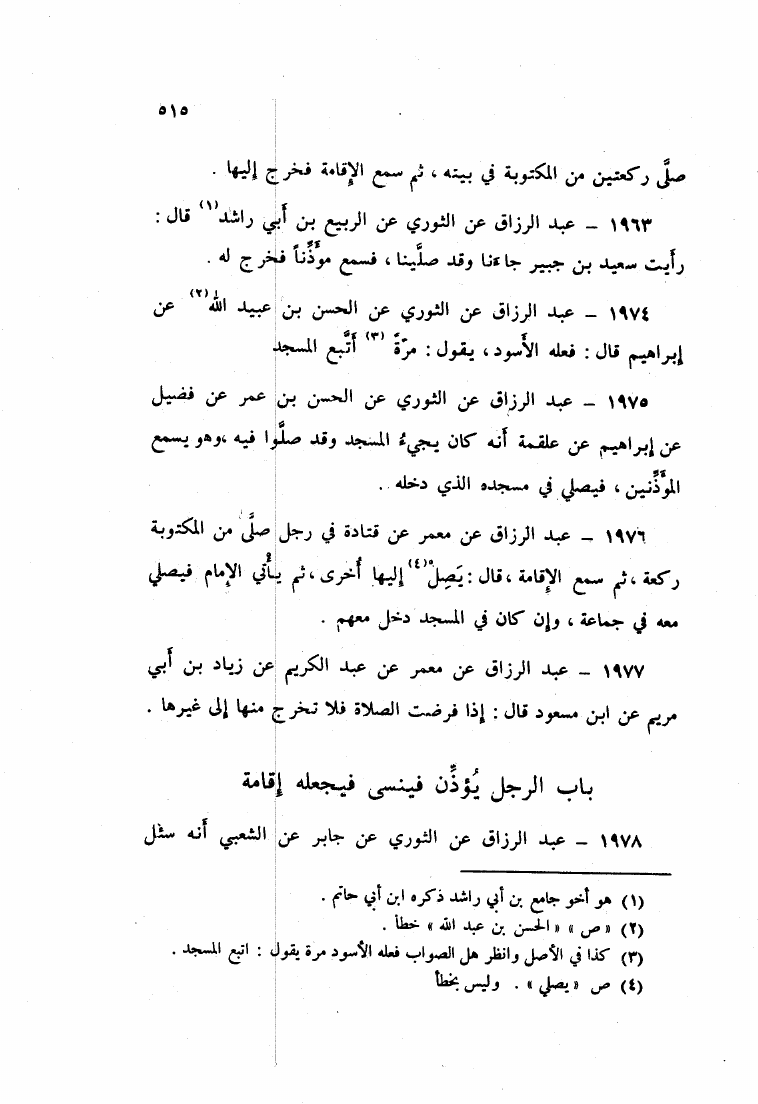 ٥١٥
صلَّى ركعتين من المكتوبة في بيته ، ثم سمع الإقامة فخرج إليها .
١٩٦٣ – عبد الرزاق عن الثوري عن الربيع بن أبي راشد(١) قال :
رأيت سعيد بن جبير جاءنا وقد صلَّينا ، فسمع مؤذِّناً فخرج له .
١٩٧٤ – عبد الرزاق عن الثوري عن الحسن بن عبيد الله(٢) عن
إبراهيم قال : فعله الأسود ، يقول : مرّةً (٣) أتَّبع المسجد
١٩٧٥ – عبد الرزاق عن الثوري عن الحسن بن عمر عن فضيل
عن إبراهيم عن علقمة أنه كان يجيءُ المسجد وقد صلَّوا فيه ،وهو يسمع
المؤذِّنين ، فيصلي في مسجده الذي دخله .
١٩٧٦ – عبد الرزاق عن معمر عن قتادة في رجل صلَّى من المكتوبة
ركعة ،ثم سمع الإقامة ،قال : يَصِلْ(٤) إليها أُخرى ،ثم يأتي الإمام فيصلي
معه في جماعة ، وإن كان في المسجد دخل معهم .
١٩٧٧ – عبد الرزاق عن معمر عن عبد الكريم عن زياد بن أبي
مريم عن ابن مسعود قال : إذا فرضت الصلاة فلا تخرج منها إلى غيرها .
باب الرجل يُؤذِّن فينسى فيجعله إقامة
١٩٧٨ – عبد الرزاق عن الثوري عن جابر عن الشعبي أنه سئل
(١) هو أخو جامع بن أبي راشد ذكره ابن أبي حاتم .
(٢) « ص » « الحسن بن عبد الله » خطأ .
(٣) كذا في الأصل وانظر هل الصواب فعله الأسود مرة يقول : اتبع المسجد .
(٤) ص « يصلي » . وليس بخطأ